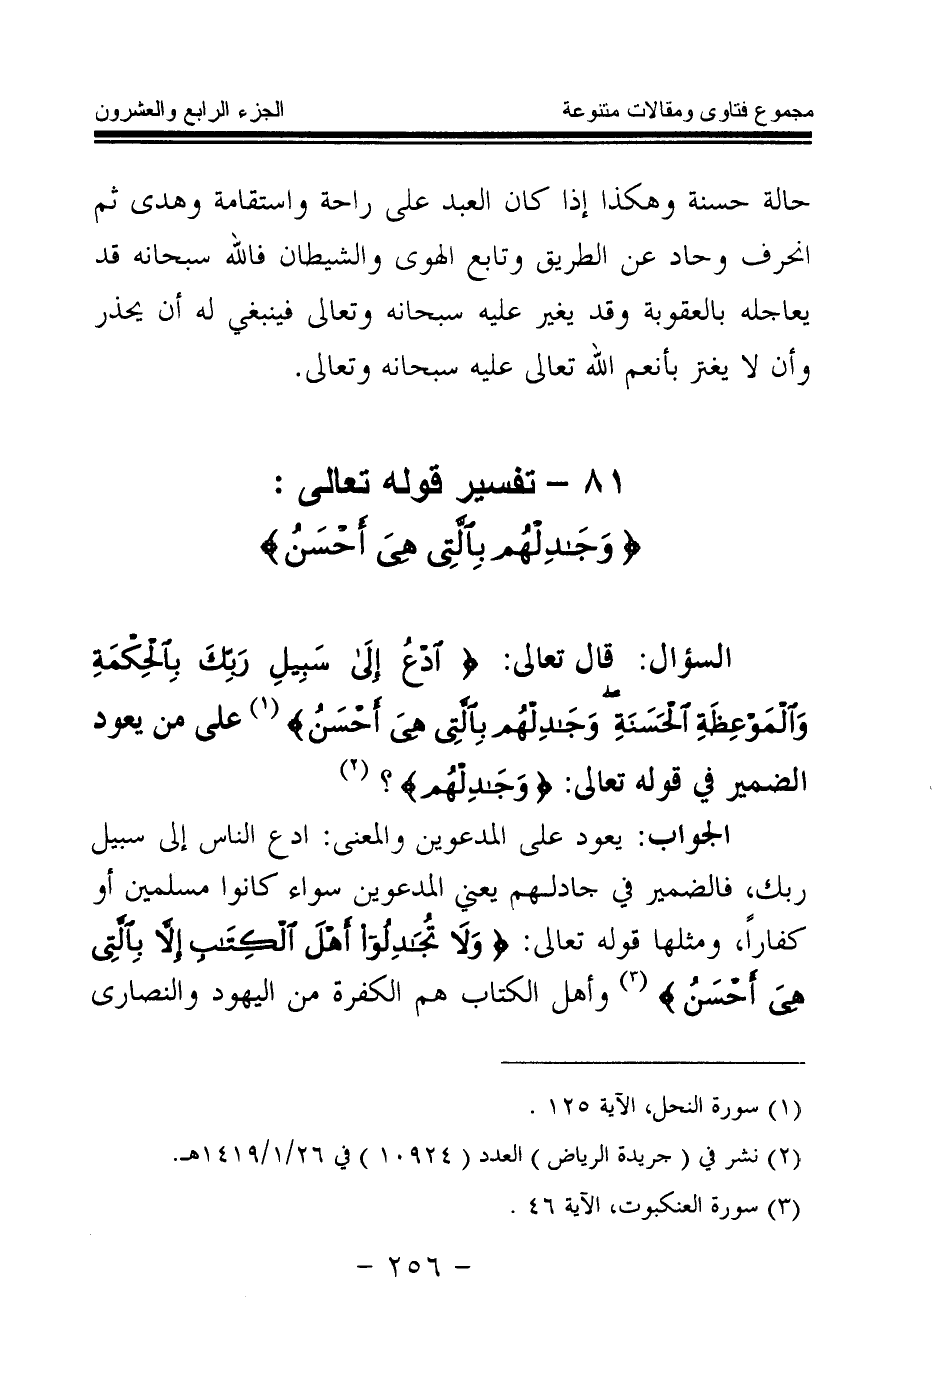 مجموع فتاوى ومقالات متنوعة الجزء الرابع والعشرون
حالة حسنة وهكذا إذا كان العبد على راحة واستقامة وهدى ثم
انحرف وحاد عن الطريق وتابع الهوى والشيطان فالله سبحانه قد
يعاجله بالعقوبة وقد يغير عليه سبحانه وتعالى فينبغي له أن يحذر
وأن لا يغتر بأنعم الله تعالى عليه سبحانه وتعالى.
٨١ – تفسير قوله تعالى :
﴿ وَجَـٰدِلْهُم بِٱلَّتِى هِىَ أَحْسَنُ ﴾
السؤال: قال تعالى: ﴿ ٱدْعُ إِلَىٰ سَبِيلِ رَبِّكَ بِٱلْحِكْمَةِ
وَٱلْمَوْعِظَةِ ٱلْحَسَنَةِ ۖ وَجَـٰدِلْهُم بِٱلَّتِى هِىَ أَحْسَنُ ﴾ (١) على من يعود
الضمير في قوله تعالى: ﴿ وَجَـٰدِلْهُم ﴾ ؟ (٢)
الجواب: يعود على المدعوين والمعنى: ادع الناس إلى سبيل
ربك، فالضمير في جادلهم يعني المدعوين سواء كانوا مسلمين أو
كفاراً، ومثلها قوله تعالى: ﴿ وَلَا تُجَـٰدِلُوٓا۟ أَهْلَ ٱلْكِتَـٰبِ إِلَّا بِٱلَّتِى
هِىَ أَحْسَنُ ﴾ (٣) وأهل الكتاب هم الكفرة من اليهود والنصارى
(١) سورة النحل، الآية ١٢٥ .
(٢) نشر في ( جريدة الرياض ) العدد ( ١٠٩٢٤ ) في ١٤١٩/١/٢٦هـ.
(٣) سورة العنكبوت، الآية ٤٦ .
– ٢٥٦ –